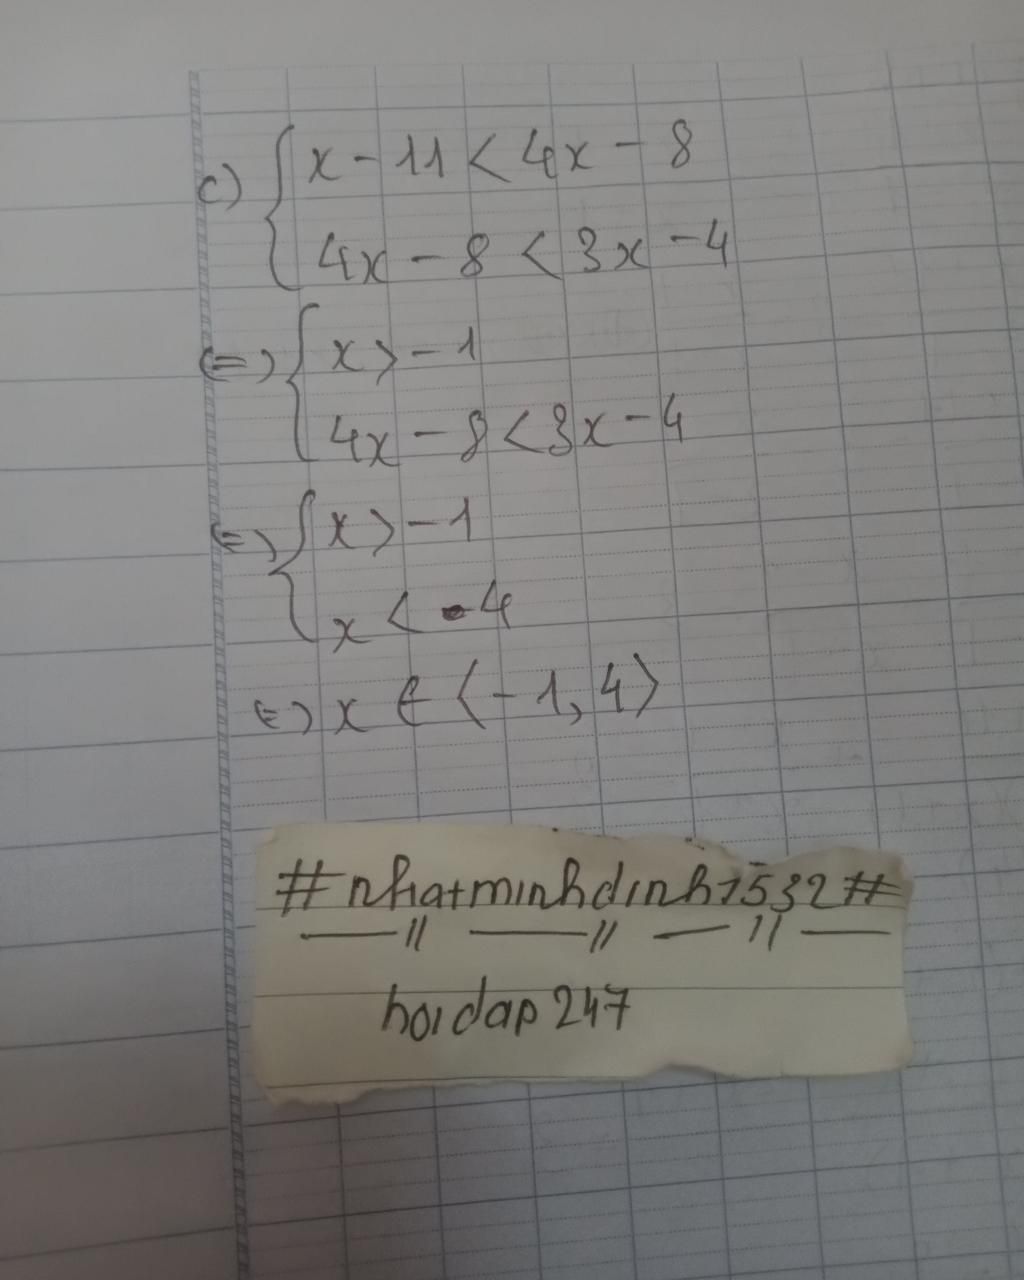 c) { x - 11 < 4x - 8
4x - 8 < 3x - 4
(=) { x > - 1
4x - 8 < 3x - 4
(=) { x > - 1
x < - 4
(=) x ∈ (- 1, 4)
#nhatminhdinh1532#
hoidap247